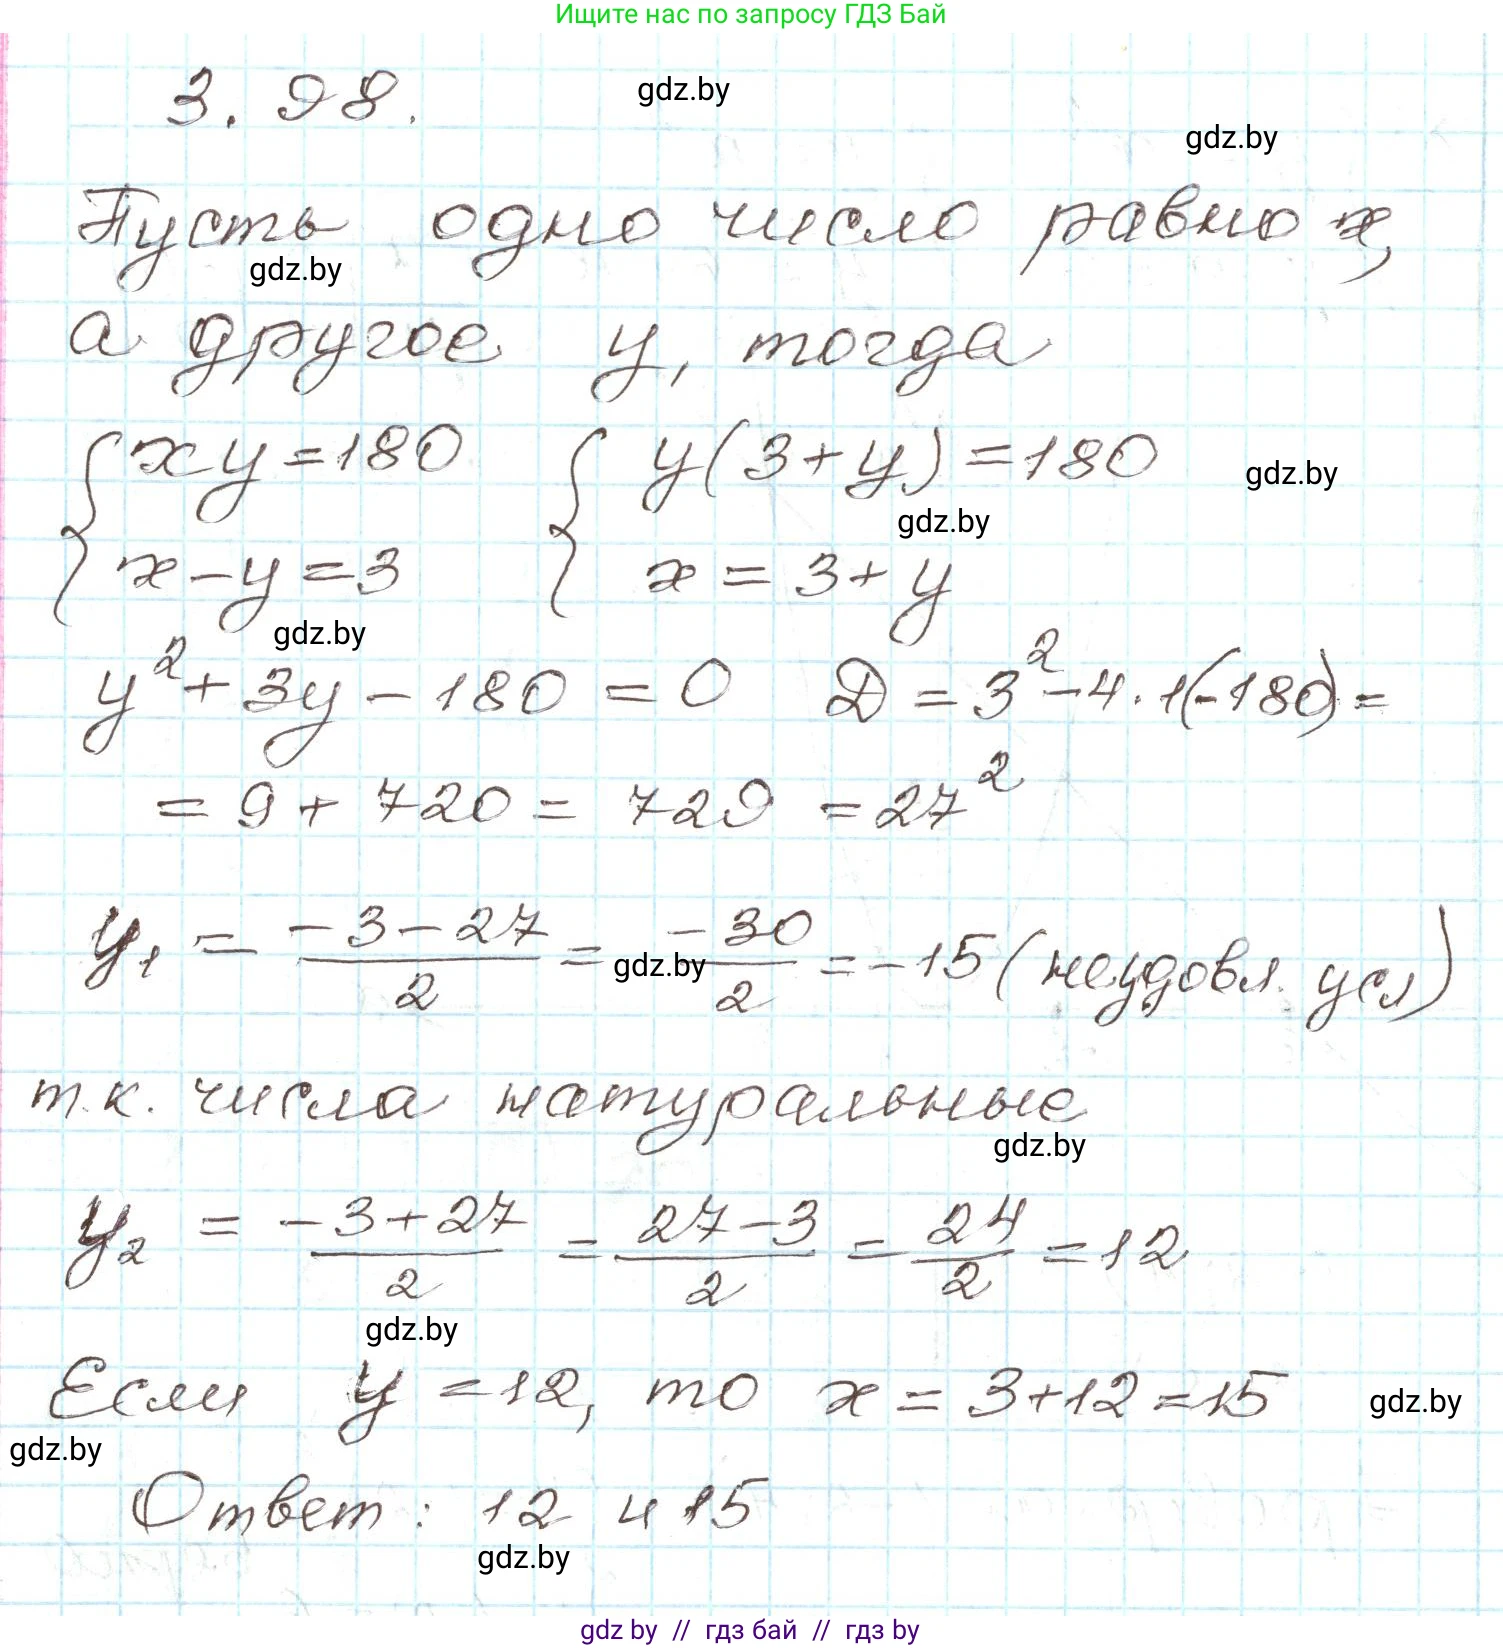 Ищите нас по запросу ГДЗ Бай
3.98.
gdz.by
gdz.by
Пусть одно число равно x,
gdz.by
а другое y, тогда
{ xy = 180 { y(3+y) = 180
gdz.by
gdz.by
x - y = 3 x = 3 + y
gdz.by
y² + 3y - 180 = 0 D = 3² - 4·1(-180) =
= 9 + 720 = 729 = 27²
y₁ = (-3-27)/2 = (-30)/2 = -15 (неудовл. усл)
gdz.by
т.к. числа натуральные
gdz.by
y₂ = (-3+27)/2 = (27-3)/2 = 24/2 = 12
gdz.by
Если y = 12, то x = 3+12 = 15
gdz.by
gdz.by
Ответ: 12 и 15
gdz.by
gdz by // гдз бай // гдз by